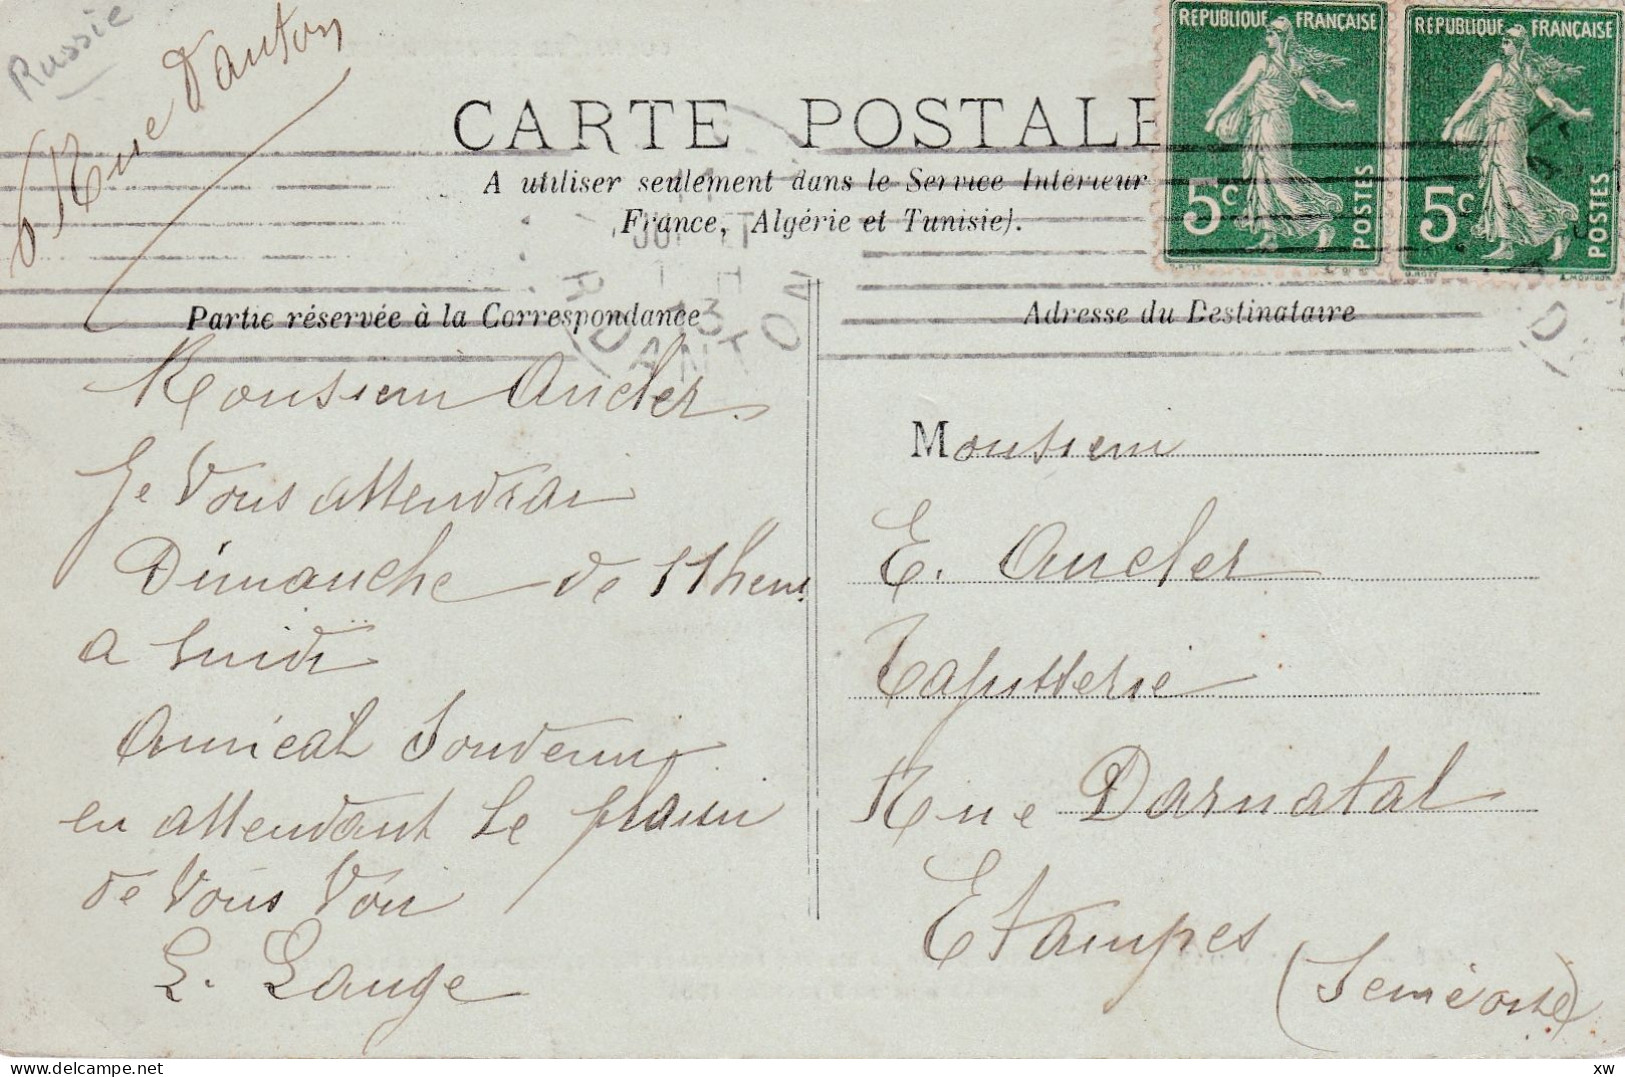 Russie
6 Rue Danton
CARTE POSTALE
A utiliser seulement dans le Service Intérieur
France, Algérie et Tunisie).
RÉPUBLIQUE FRANÇAISE
5c
POSTES
RÉPUBLIQUE FRANÇAISE
5c
POSTES
DANTON
Partie réservée à la Correspondance
Adresse du Destinataire
Monsieur Ancler
Je Vous attendrai
Dimanche de 11 heur
a
Amical Souvenir
en attendant le plaisir
de Vous Voir
L. Lange
Monsieur
E. Ancler
Rue Darnatal
Etampes
(Seine et oise)
www.delcampe.net
xw